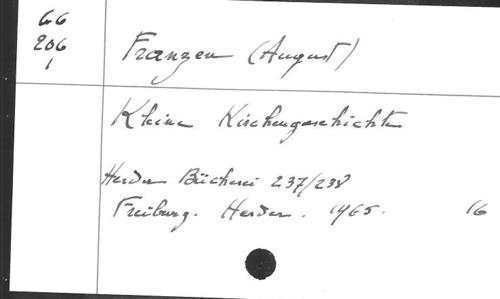 GG
206
1
Franzen (August)
Kleine Kirchengeschichte
Herder Bücherei 237/238
Freiburg. Herder. 1965. 16